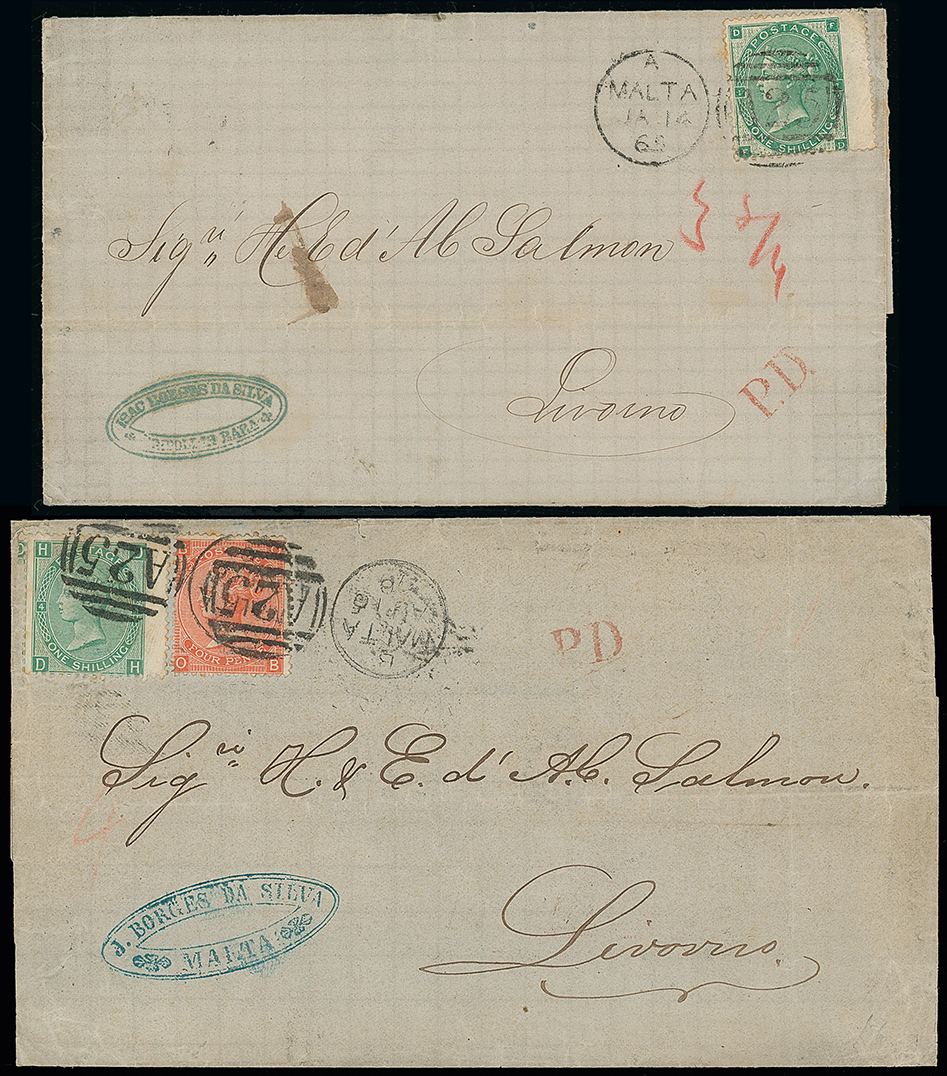 A
MALTA
JA 14
65
D F
POSTAGE
ONE SHILLING
F D
Sigri H. E d' Ab Salmon
Livorno
P.D.
ISAC BORGES DA SILVA
H AGE
4
ONE SHILLING
D H
A25
POST
FOUR PEN
O B
A25
B
MALTA
AU
P.D
Sigri H. & E. d' Ab. Salmon.
Livorno.
J. BORGES DA SILVA
MALTA